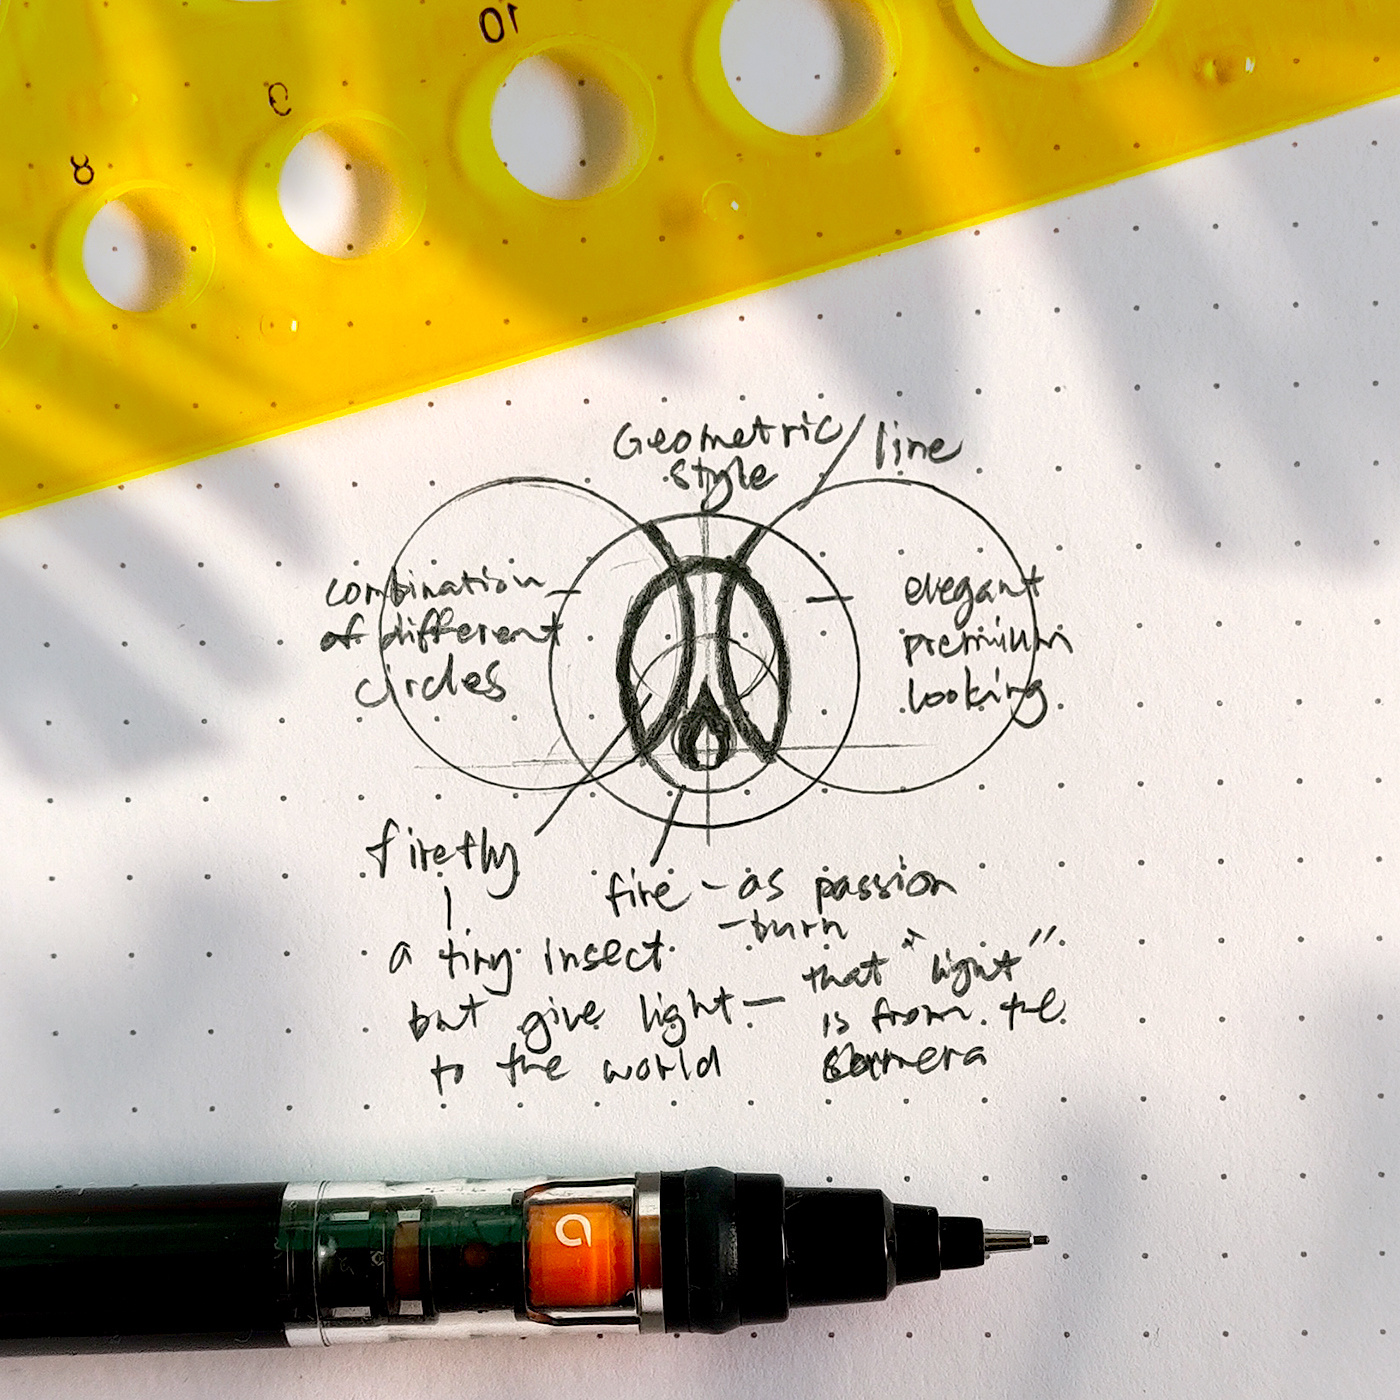 10
9
8
Geometric / line
style
combination
of different
circles
elegant
premium
looking
firefly
a tiny insect
but give light —
to the world
fire - as passion
- burn
that "light"
is from the
camera